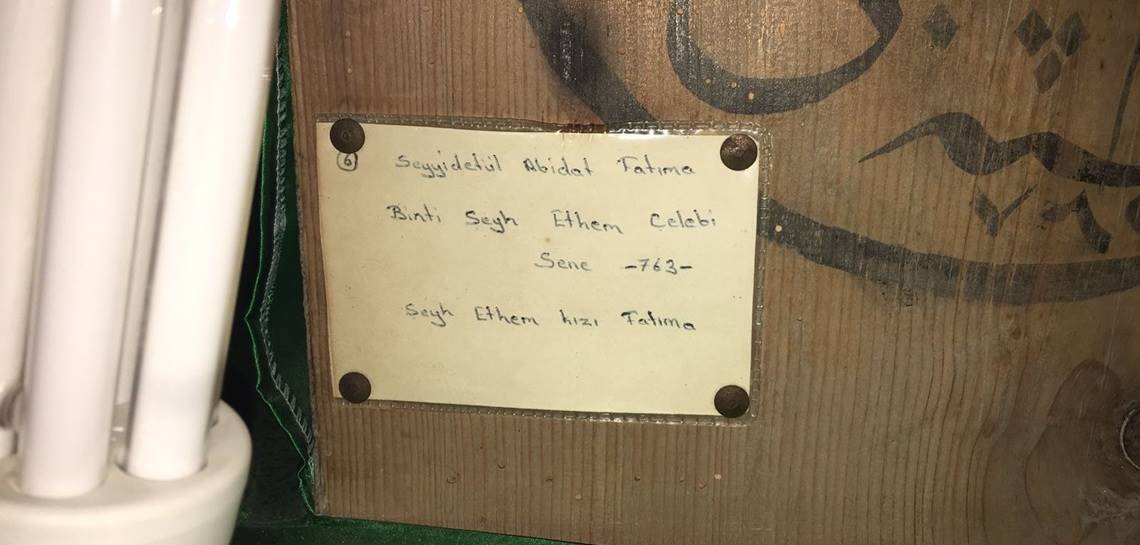 6 Seyyidetül Abidat Fatıma
Binti Şeyh Ethem Çelebi
Sene -763-
Şeyh Ethem kızı Fatıma